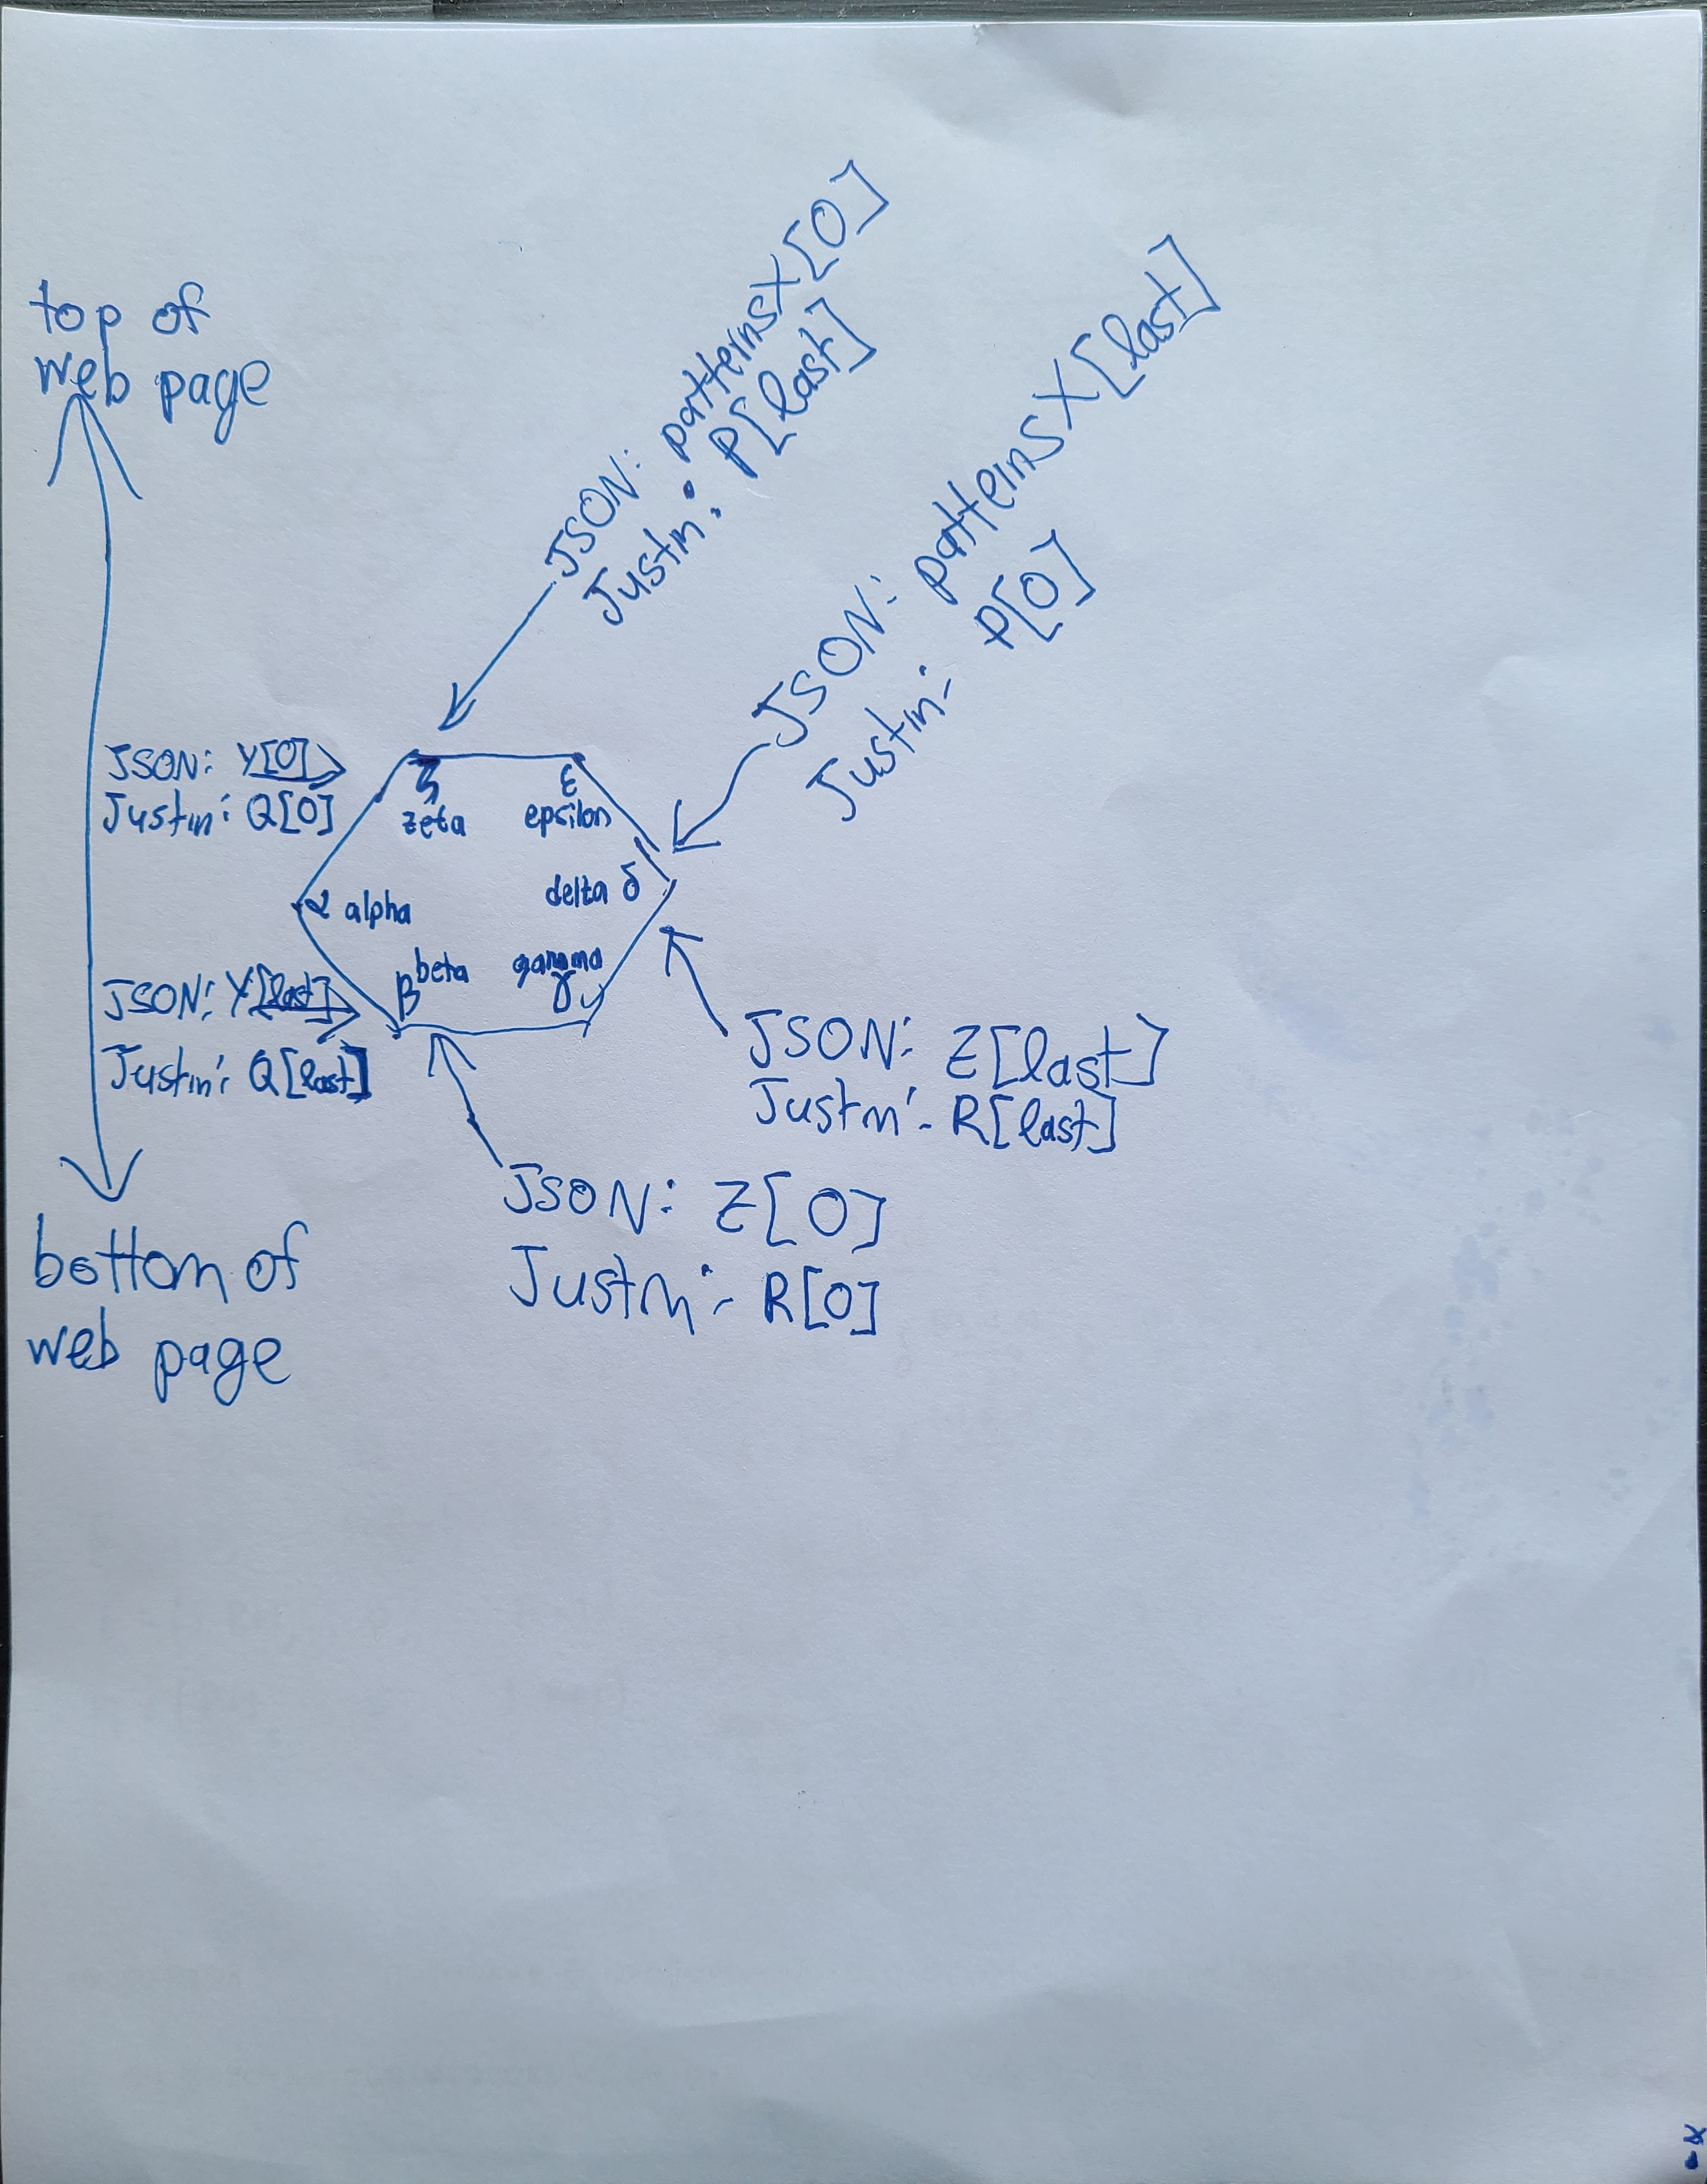 top of
web page
JSON: patternsX[0]
Justin: P[last]
JSON: patternsX[last]
Justin: P[0]
JSON: Y[0]
Justin: Q[0]
ζ
zeta
ε
epsilon
α alpha
delta δ
β beta
gamma
γ
JSON: Y[last]
Justin: Q[last]
JSON: Z[last]
Justin: R[last]
JSON: Z[0]
Justin: R[0]
bottom of
web page